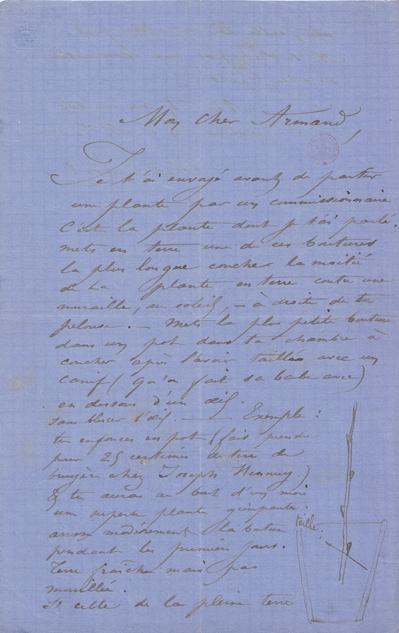 Mon cher Armand,
Je t'ai envoyé avant de partir
une plante par un commissionnaire
C'est la plante dont je t'ai parlé.
mets en terre une de ces boutures
la plus longue coucher la moitié
de la plante en terre contre une
muraille, au soleil, - à droite de ta
pelouse. - Mets la plus petite bouture
dans un pot dans ta chambre à
coucher après l'avoir taillée avec un
canif (qu'on fait sa base avec)
en dessous d'un œil.
sans l'œil. - Exemple:
tu enfonces en pot (fais prendre
pour 25 centimes de terre de
bruyère chez Joseph)
& tu auras au bout d'un mois
une superbe plante grimpante.
arrose modérément la bouture
pendant les premiers jours.
Terre fraîche mais pas
mouillée.
Si celle de la pleine terre
taille.